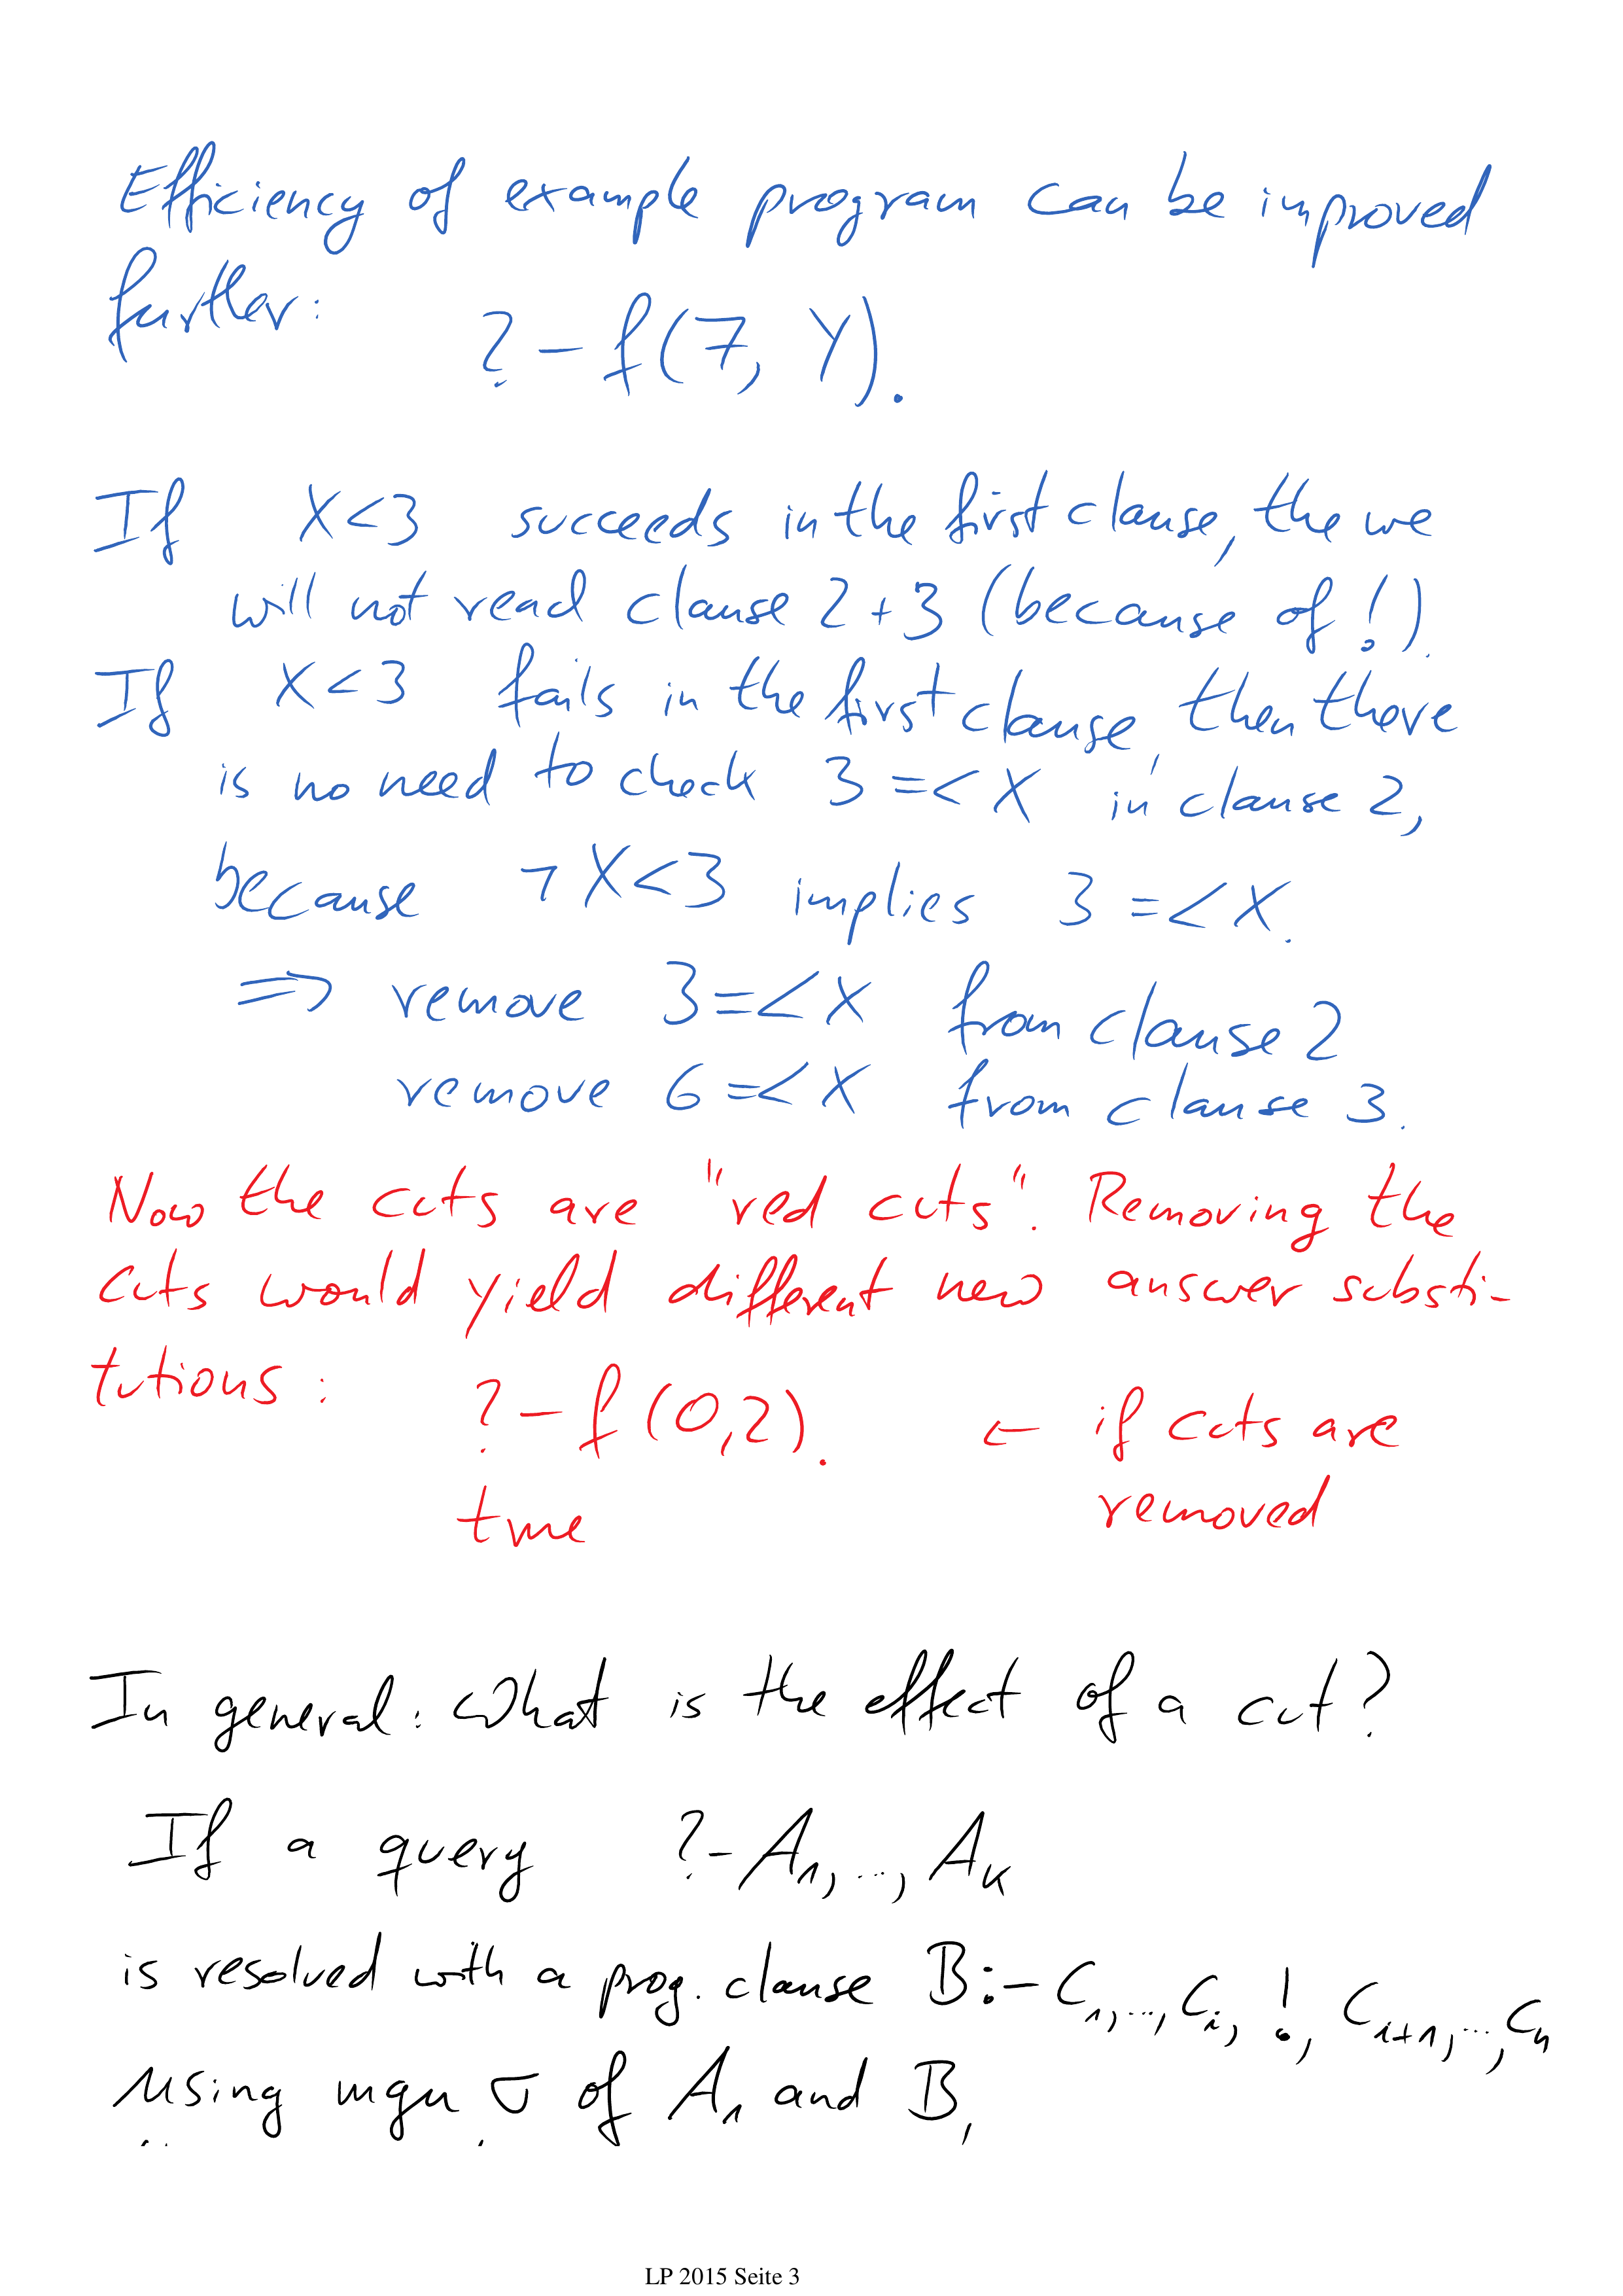 Efficiency of example program can be improved
further:
?- f(7, Y).
If X<3 succeeds in the first clause, the we
will not read clause 2+3 (because of !).
If X<3 fails in the first clause, then there
is no need to check 3 =< X in clause 2,
because ¬ X<3 implies 3 =< X.
⇒ remove 3 =< X from clause 2
remove 6 =< X from clause 3.
Now the cuts are "red cuts". Removing the
cuts would yield different new answer substi-
tutions: ?- f(0,2). ← if cuts are
true removed
In general: What is the effect of a cut?
If a query ?- A₁,…, Aₖ
is resolved with a prog. clause B :- C₁,…, Cᵢ, !, Cᵢ₊₁,…, Cₙ
using mgu σ of A₁ and B,
LP 2015 Seite 3